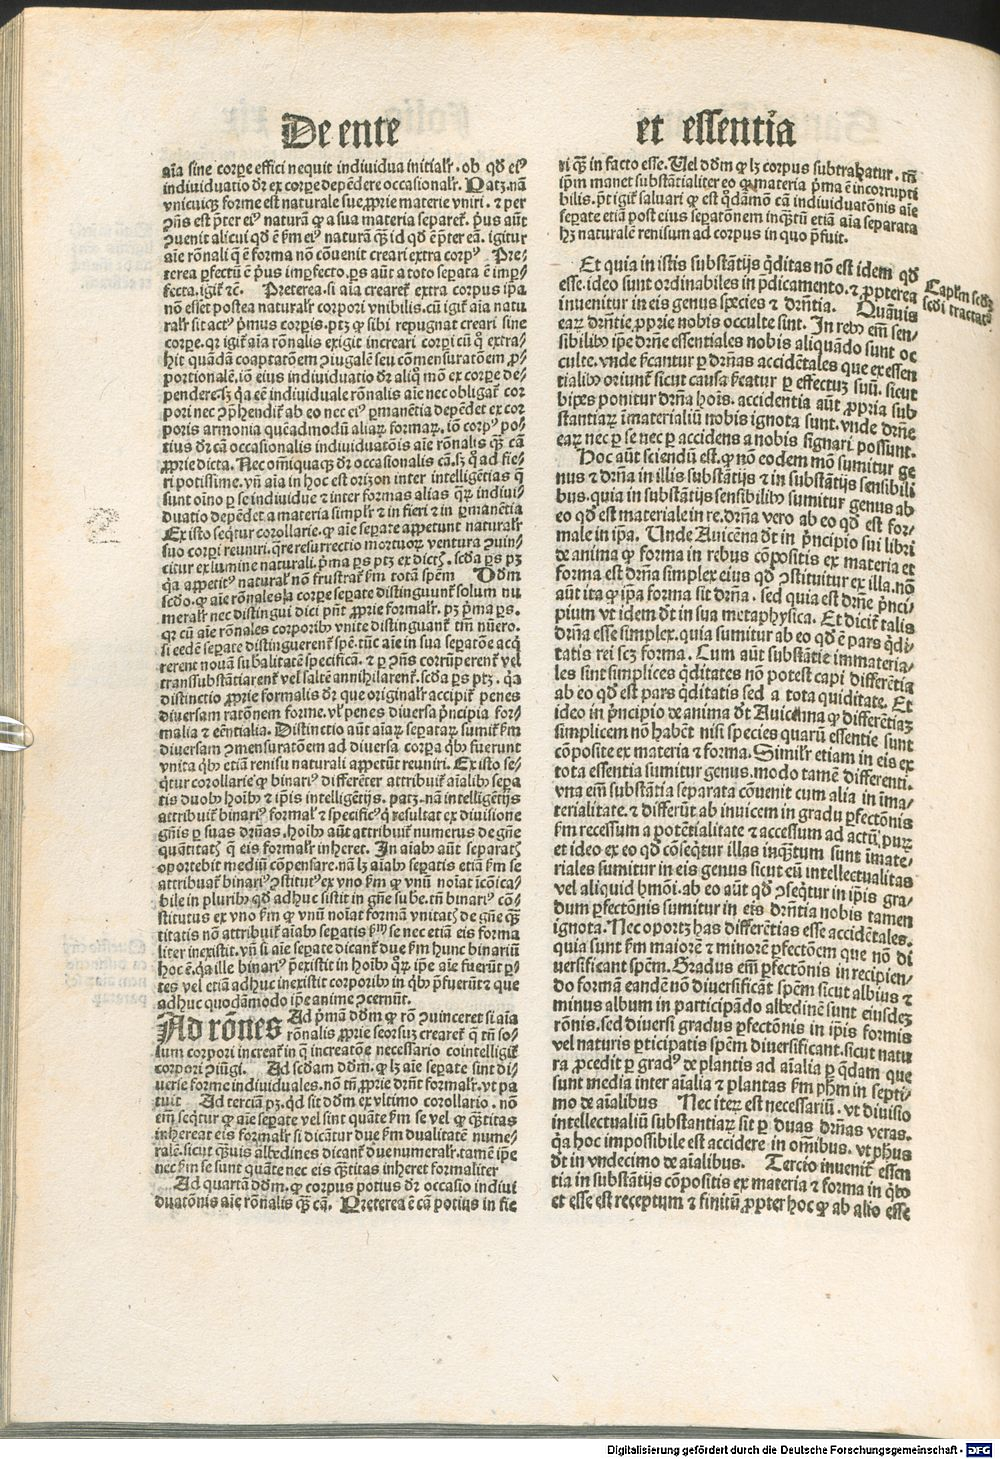 De ente
aīa sine corꝑe effici nequit indiuidua initialr̄ . ob qd̓ eiꝰ
indiuiduatio dr̄ ex corꝑe depēdere occasionalr̄. Patꝫ. nā
vnicuiqꝫ forme est naturale sue ꝓprie materie vniri . ⁊ per
ꝯn̄s est p̄ter eiꝰ naturā ꝙ a sua materia separeť. p̓us aūt
ꝯuenit alicui qd̓ ē ẜm eiꝰ naturā qꝫ̄ id qd̓ ē p̄ter eā. igitur
aīe rōnali q̄ ē forma nō cōuenit creari extra corpꝰ Pre⸗
terea ꝑfectū ē p̓us imꝑfecto. ꝑs aūt a toto seꝑata ē imꝑ⸗
fecta. igiť ꝛc̄. Preterea. si aīa crearet̓ extra corpus ip̄a
nō esset postea naturalr̄ corpori vnibilis. cū igiť aīa natu
ralr̄ sit actꝰ p̓mus corꝑis. ptꝫ ꝙ sibi repugnat creari sine
corꝑe. qꝛ igiť aīa rōnalis exigit increari corpi cū q̊ extra⸗
hit quādā coaptatōem ꝯiugalē seu cōmensuratōem ꝓ⸗
portionalē. iō eius indiuiduatio dr̄ aliq̊ mō ex corꝑe de⸗
pendere. sꝫ q̓a eē indiuiduale rōnalis aīe nec obligať cor
pori nec ꝯp̄hendiť ab eo nec eiꝰ ꝑmanētia depēdet ex cor
poris armonia quēadmodū aliaꝝ formaꝝ. iō corpꝰ po⸗
tius dr̄ cā occasionalis indiuiduatōis aīe rōnalis qꝫ̄ cā
ꝓprie dicta. Nec om̄iquaqꝫ dr̄ occasionalis cā. sꝫ q̊ ad fie⸗
ri potissime. vn̄ aīa in hoc est orizon inter intelligētias q̄
sunt oīno ꝑ se indiuidue ⁊ inter formas alias qꝝ indiui⸗
duatio depēdet a materia simplr̄ ⁊ in fieri ⁊ in ꝑmanētia
Ex isto seq̄tur corollarie. ꝙ aīe seꝑate appetunt naturalr̄
suo corpi reuniri. q̄re resurrectio mortuoꝝ ventura ꝯuin⸗
citur ex lumine naturali. p̓ma ꝑs ptꝫ ex dictꝭ. scd̓a ꝑs ptꝫ
q̓a appetitꝰ naturalꝭ nō frustrať ẜm totā spēm Dd̓m
scd̓o. ꝙ aīe rōnales a corꝑe seꝑate distinguunt̓ solum nu
meralr̄ nec distingui dici pn̄t ꝓprie formalr̄. pꝫ p̓ma ꝑs.
qꝛ cū aīe rōnales corporibꝰ vnite distinguant̓ tm̄ nūero.
si eedē seꝑate distinguerent̓ spē. tūc aīe in sua seꝑatōe acq̓
rerent nouā sub̄alitatē specificā. ⁊ ꝑ ꝯn̄s corrūperent̓ vel
transsubstātiarent̓ vel saltē annihilarent̓. scd̓a ꝑs ptꝫ. q̓a
distinctio ꝓprie formalis dr̄ que originalr̄ accipiť penes
diuersam ratōnem forme. vꝉ penes diuersa p̓ncipia for⸗
malia ⁊ eēntialia. Distinctio aūt aīaꝝ seꝑataꝝ sumiť ẜm
diuersam ꝯmensuratōem ad diuersa corꝑa qb̓ꝰ fuerunt
vnita qb̓ꝰ etiā renisu naturali appetūt reuniri. Ex isto se⸗
q̄tur corollarie ꝙ binariꝰ differēter attribuiť aīalibꝰ seꝑa
tis duobꝰ hoībꝰ ⁊ ip̄is intelligētijs. patꝫ. nā intelligētijs
attribuiť binariꝰ formalꝭ ⁊ specificꝰ q̓ resultat ex diuisione
gn̄is ꝑ suas drn̄as. hoībꝰ aūt attribuiť numerus de gn̄e
quātitatꝭ q̄ eis formalr̄ inheret. In aīabꝰ aūt seꝑatꝭ
oportebit mediū cōpensare. nā lꝫ aīabꝰ seꝑatis etiā ẜm se
attribuať binariꝰ ꝯstitutꝰ ex vno ẜm ꝙ vnū noīat īcōica⸗
bile in pluribꝰ qd̓ adhuc sistit in gn̄e sub̄e. tn̄ binariꝰ cō⸗
stitutus ex vno ẜm ꝙ vnū noīat formā vnitatꝭ de gn̄e qꝫ̄
titatis nō attribuiť aīabꝰ seꝑatis ẜm se nec etiā eis forma
liter inexistit. vn̄ si aīe seꝑate dicant̓ due ẜm hunc binariū
hoc ē. q̓a ille binariꝰ p̄existit in hoībꝰ qꝝ ip̄e aīe fuerūt ꝑ⸗
tes vel etiā adhuc inexistit corporibꝰ in qb̓ꝰ p̄fuerūt ⁊ que
adhuc quodāmodo ip̄e anime ꝯcernūt.
Ad rōnes Ad p̓mā dd̓m ꝙ rō ꝯuinceret si aīa
rōnalis ꝓprie seorsuꝫ crearet̓ q̄ tn̄ so⸗
lum corpori increať in q̄ increatōe necessario cointelligiť
corpori ꝯiūgi. Ad scd̓am dd̓m. ꝙ lꝫ aīe seꝑate sint di⸗
uerse forme indiuiduales. nō tn̄ ꝓprie drn̄t formalr̄. vt pa
tuit Ad terciā pꝫ. qd̓ sit dd̓m ex vltimo corollario . nō
em̄ seq̄tur ꝙ aīe seꝑate vel sint quāte ẜm se vel ꝙ qꝫ̄titas
inhereat eis formalr̄ si dicātur due ẜm dualitatē nume⸗
ralē. sicut qꝫ̄uis albedines dicant̓ due numeralr̄. tamē ip̄e
nec ẜm se sunt quāte nec eis qꝫ̄titas inheret formaliter
Ad quartā dd̓m. ꝙ corpus potius dr̄ occasio indiui
duatōnis aīe rōnalis qꝫ̄ cā. Preterea ē cā potius in fie
et essentia
ri qꝫ̄ in facto esse. Uel dd̓m ꝙ lꝫ corpus subtrahatur . tn̄
ip̄m manet substātialiter eo ꝙ materia p̓ma ē incorrupti
bilis. pt̄ igiť saluari ꝙ est q̊dāmō cā indiuiduatōnis aīe
seꝑate etiā post eius seꝑatōnem inqꝫ̄tū etiā aīa seꝑarata
hꝫ naturalē renisum ad corpus in quo p̄fuit.
Et quia in istis substātijs qd̓itas nō est idem qd̓
esse. ideo sunt ordinabiles in p̄dicamento. ⁊ ꝓpterea
inuenitur in eis genus species ⁊ drn̄tia. Quāuis
eaꝝ drn̄tie ꝓprie nobis occulte sint. In rebꝰ em̄ sen⸗
sibilibꝰ ip̄e drn̄e essentiales nobis aliquādo sunt oc
culte. vnde ẜcantur ꝑ drn̄as accidētales que ex essen
tialibꝰ oriunt̓ sicut causa ẜcatur ꝑ effectuꝫ suū. sicut
bipes ponitur drn̄a hoīs. accidentia aūt ꝓpria sub
stantiaꝝ īmaterialiū nobis ignota sunt. vnde drn̄e
eaꝝ nec ꝑ se nec ꝑ accidens a nobis signari possunt.
Hoc aūt sciendū est. ꝙ nō eodem mō sumitur ge
nus ⁊ drn̄a in illis substātijs ⁊ in substātijs sensibili
bus. quia in substātijs sensibilibꝰ sumitur genus ab
eo qd̓ est materiale in re. drn̄a vero ab eo qd̓ est for⸗
male in ip̄a. Unde Auicēna dt̄ in p̓ncipio sui libri
de anima ꝙ forma in rebus cōpositis ex materia et
forma est drn̄a simplex eius qd̓ ꝯstituitur ex illa. nō
aūt ita ꝙ ip̄a forma sit drn̄a. sed quia est drn̄e p̓nci⸗
pium vt idem dt̄ in sua metaphysica. Et diciť talis
drn̄a esse simplex. quia sumitur ab eo qd̓ ē pars qd̓i⸗
tatis rei scꝫ forma. Cum aūt substātie immateria⸗
les sint simplices qd̓itates nō potest capi differētia
ab eo qd̓ est pars qd̓itatis sed a tota quiditate. Et
ideo in p̓ncipio de anima dt̄ Auicenna ꝙ differētiaꝫ
simplicem nō habēt nisi species quarū essentie sunt
cōposite ex materia ⁊ forma. Similr̄ etiam in eis ex
tota essentia sumitur genus. modo tamē differenti.
vna em̄ substātia separata cōuenit cum alia in īma⸗
terialitate. ⁊ differūt ab inuicem in gradu ꝑfectōnis
ẜm recessum a potētialitate ⁊ accessum ad actū puꝝ
et ideo ex eo qd̓ cōseq̄tur illas inqꝫ̄tum sunt īmate⸗
riales sumitur in eis genus sicut eū intellectualitas
vel aliquid hmōi. ab eo aūt qd̓ ꝯseq̄tur in ip̄is gra⸗
dum ꝑfectōnis sumitur in eis drn̄tia nobis tamen
ignota. Nec oportꝫ has differētias esse accidētales.
quia sunt ẜm maiorē ⁊ minorē ꝑfectōem que nō di
uersificant spēm. Gradus em̄ ꝑfectōnis in recipien⸗
do formā eandē nō diuersificāt spēm sicut albius ⁊
minus album in participādo albedinē sunt eiusdeꝫ
rōnis. sed diuersi gradus ꝑfectōnis in ip̄is formis
vel naturis ꝑticipatis spēm diuersificant. sicut natu
ra ꝓcedit ꝑ gradꝰ de plantis ad aīalia ꝑ q̓dam que
sunt media inter aīalia ⁊ plantas ẜm ph̄m in septi⸗
mo de aīalibus Nec iteꝝ est necessariū. vt diuisio
intellectualiū substantiaꝝ sit ꝑ duas drn̄as veras.
q̓a hoc impossibile est accidere in om̄ibus. vt ph̄us
dt̄ in vndecimo de aīalibus. Tercio inueniť essen
tia in substātijs cōpositis ex materia ⁊ forma in qb̓ꝰ
et esse est receptum ⁊ finitū ꝓpter hoc ꝙ ab alio esse
Caplm̄ scd̓ꝫ
scd̓i tractatꝰ
Digitalisierung gefördert durch die Deutsche Forschungsgemeinschaft - DFG